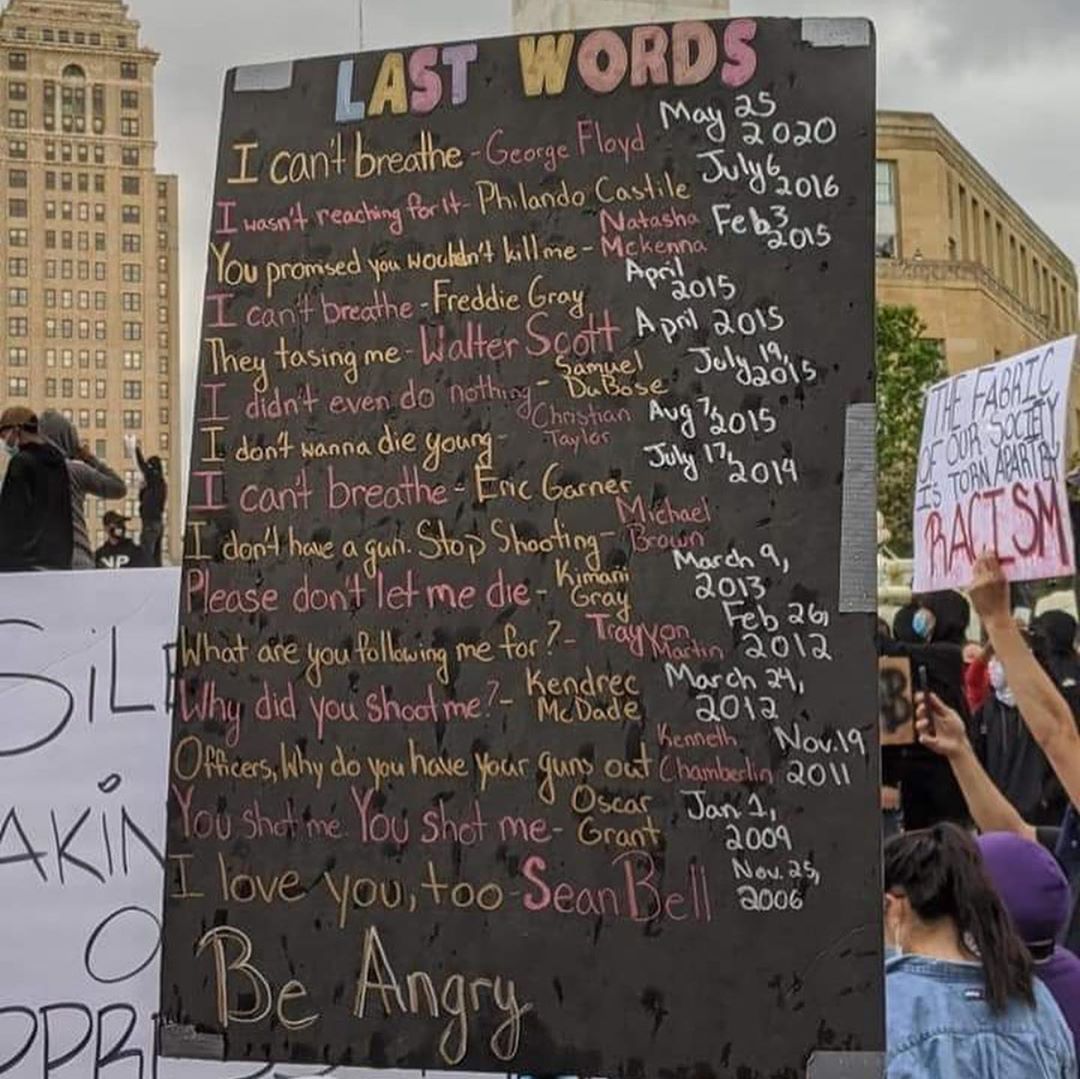 LAST WORDS
I can't breathe - George Floyd May 25 2020
I wasn't reaching for it - Philando Castile July 6 2016
You promised you wouldn't kill me - Natasha Mckenna Feb 3 2015
I can't breathe - Freddie Gray April 2015
They tasing me - Walter Scott April 2015
I didn't even do nothing - Samuel DuBose July 19, 2015
I don't wanna die young - Christian Taylor Aug 7, 2015
I can't breathe - Eric Garner July 17, 2014
I don't have a gun. Stop Shooting - Michael Brown
Please don't let me die - Kimani Gray March 9, 2013
What are you following me for? - Trayvon Martin Feb 26, 2012
Why did you shoot me? - Kendrec McDade March 24, 2012
Officers, Why do you have your guns out Kenneth Chamberlin Nov. 19 2011
You shot me. You shot me - Oscar Grant Jan 1, 2009
I love you, too - Sean Bell Nov. 25, 2006
Be Angry
THE FABRIC
OF OUR SOCIETY
IS TORN APART BY
RACISM
SiL
AKIN
O
PPR